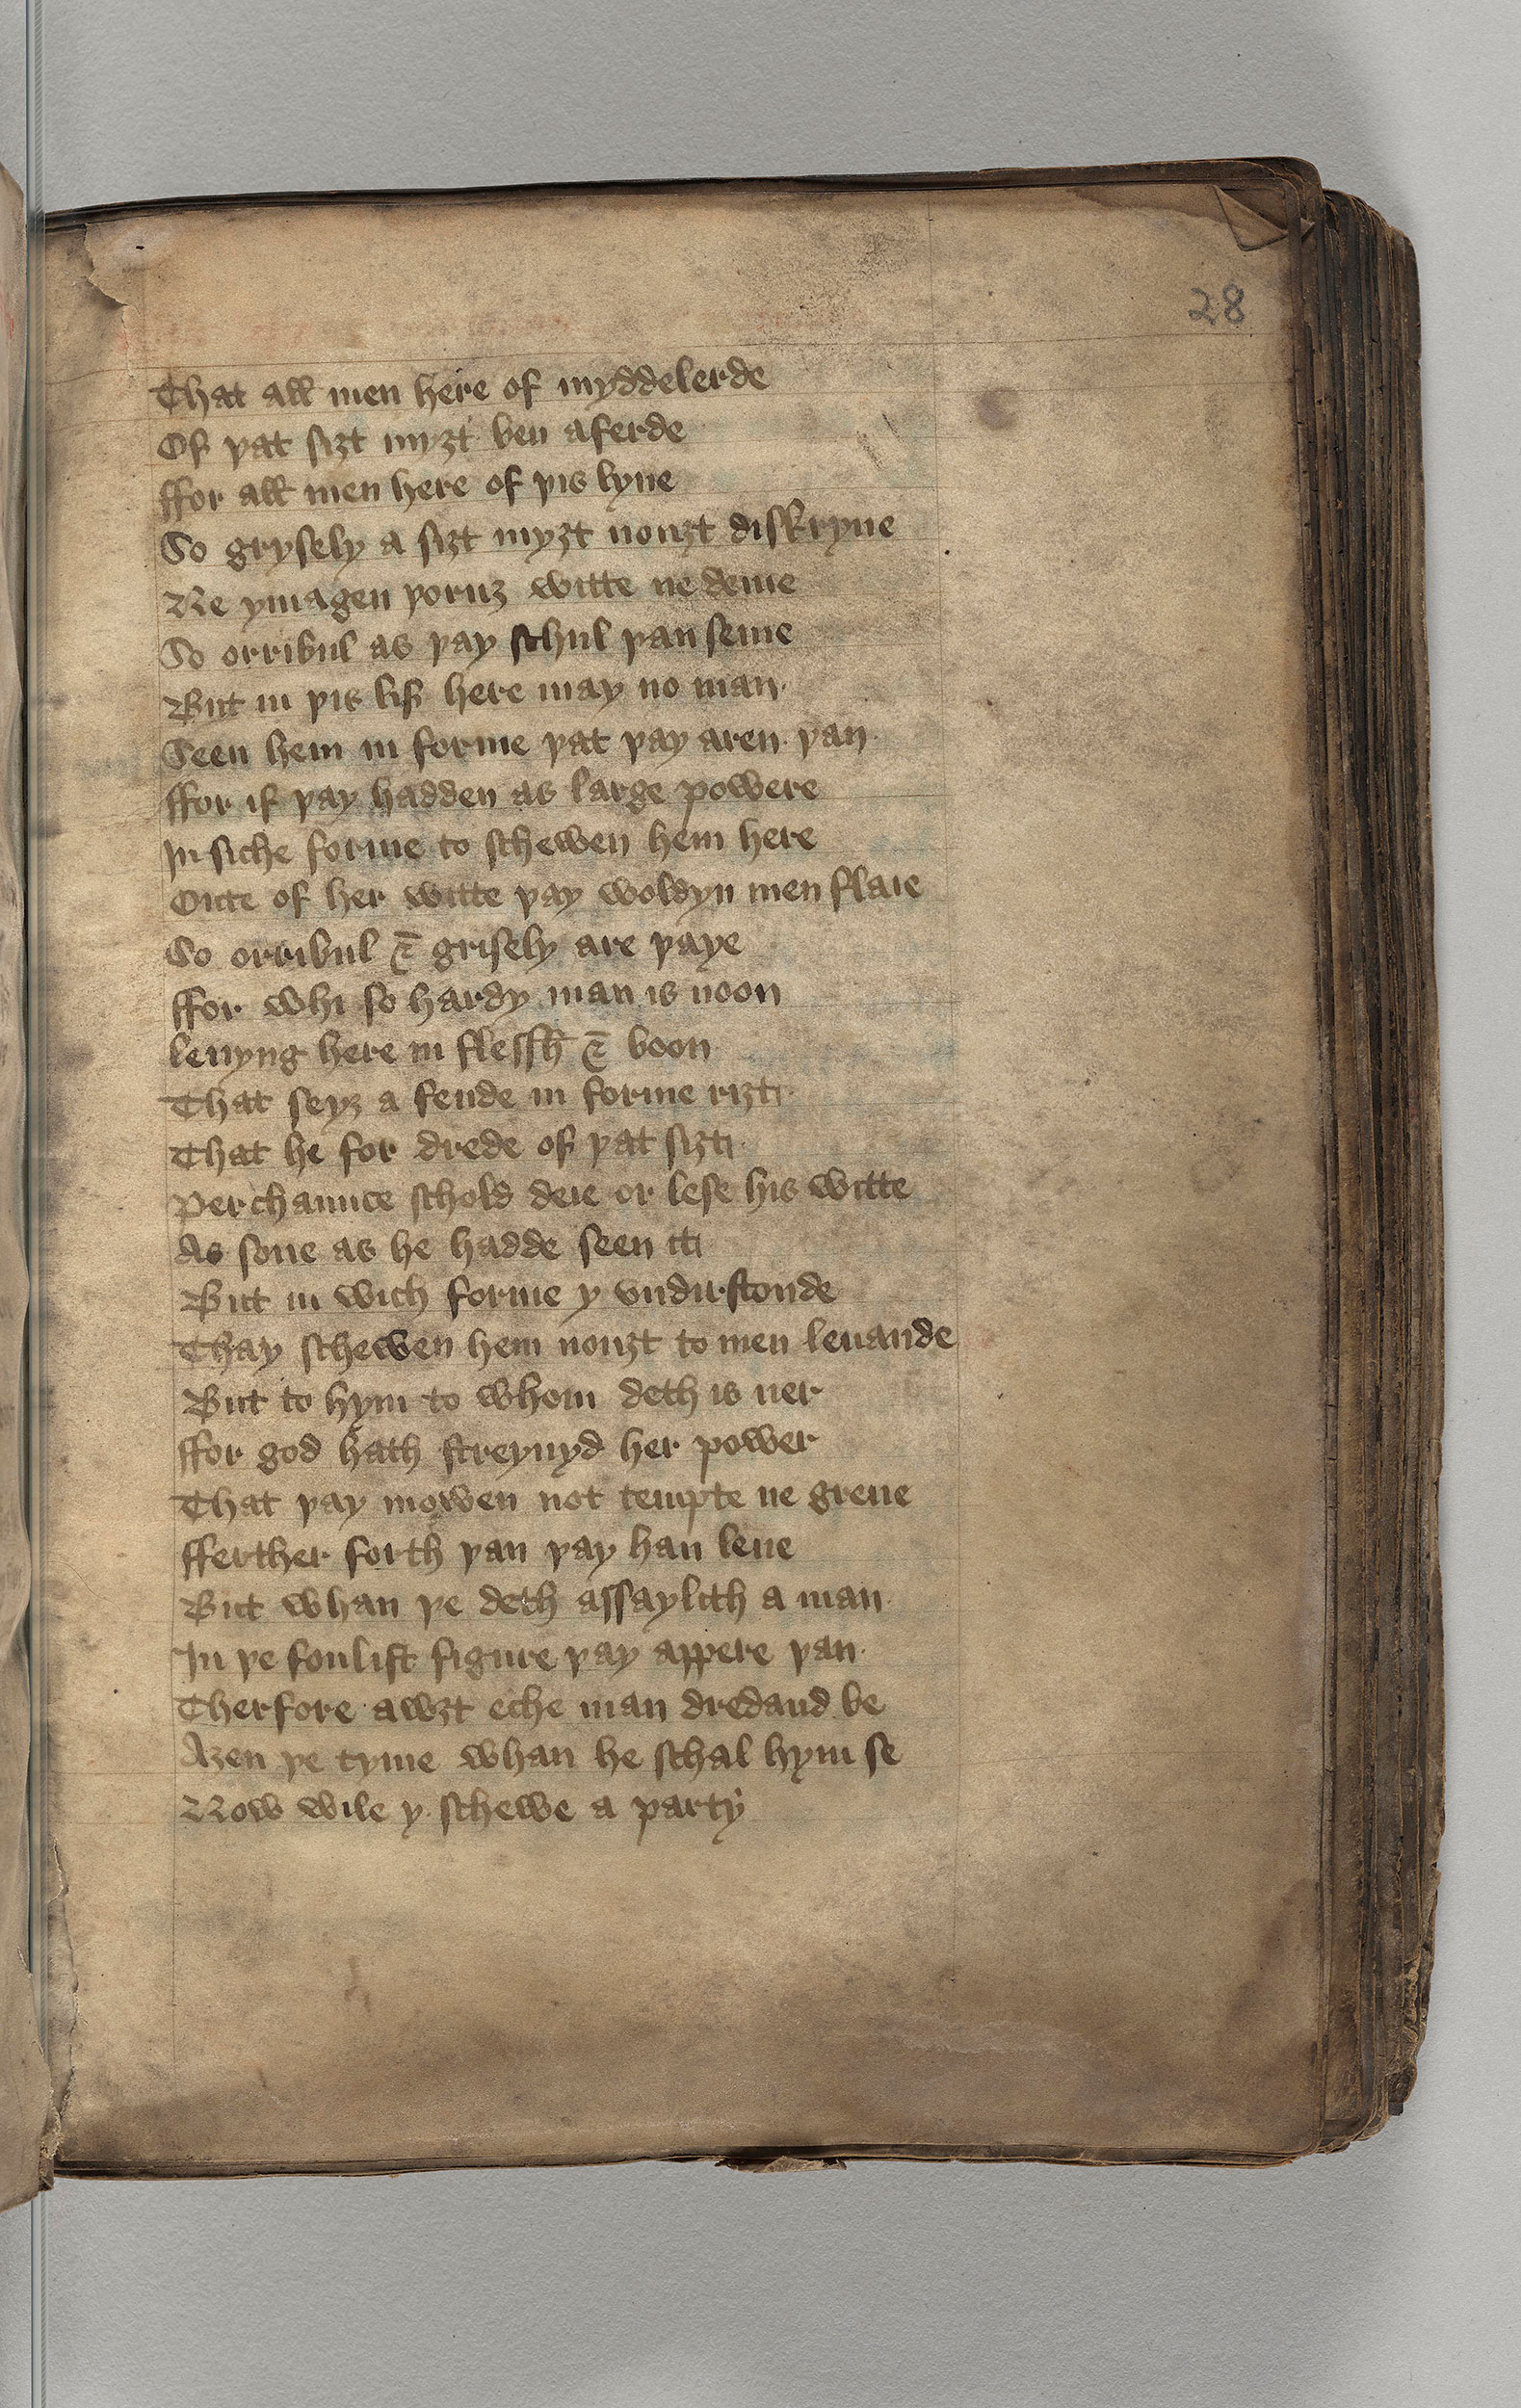 28
That all men here of myddelerde
Of þat siȝt myȝt ben aferde
ffor all men here of þis lyue
So grysely a siȝt myȝt nouȝt diskryue
Ne ymagen þoruȝ witte ne deme
So orribul as þay schul þan seme
But in þis lif here may no man
Seen hem in forme þat þay aren þan
ffor if þay hadden as large powere
In siche forme to schewen hem here
Oute of her witte þay woldyn men flaie
So orribul & grisely are þaye
ffor whi so hardy man is noon
leuyng here in flessh & boon
That seyȝ a fende in forme riȝt
That he for drede of þat siȝt
Perchaunce schold deie or lese his witte
As sone as he hadde seen it
But in wich forme y vndurstonde
Thay schewen hem nouȝt to men leuande
But to hym to whom deth is ner
ffor god hath streynyd her power
That þay mowen not tempte ne greue
fferther forth þan þay han leue
But whan þe deth assaylith a man
In þe foulist figure þay appere þan
Therfore awȝt eche man dredand be
Aȝen þe tyme whan he schal hym se
Now wile y schewe a party